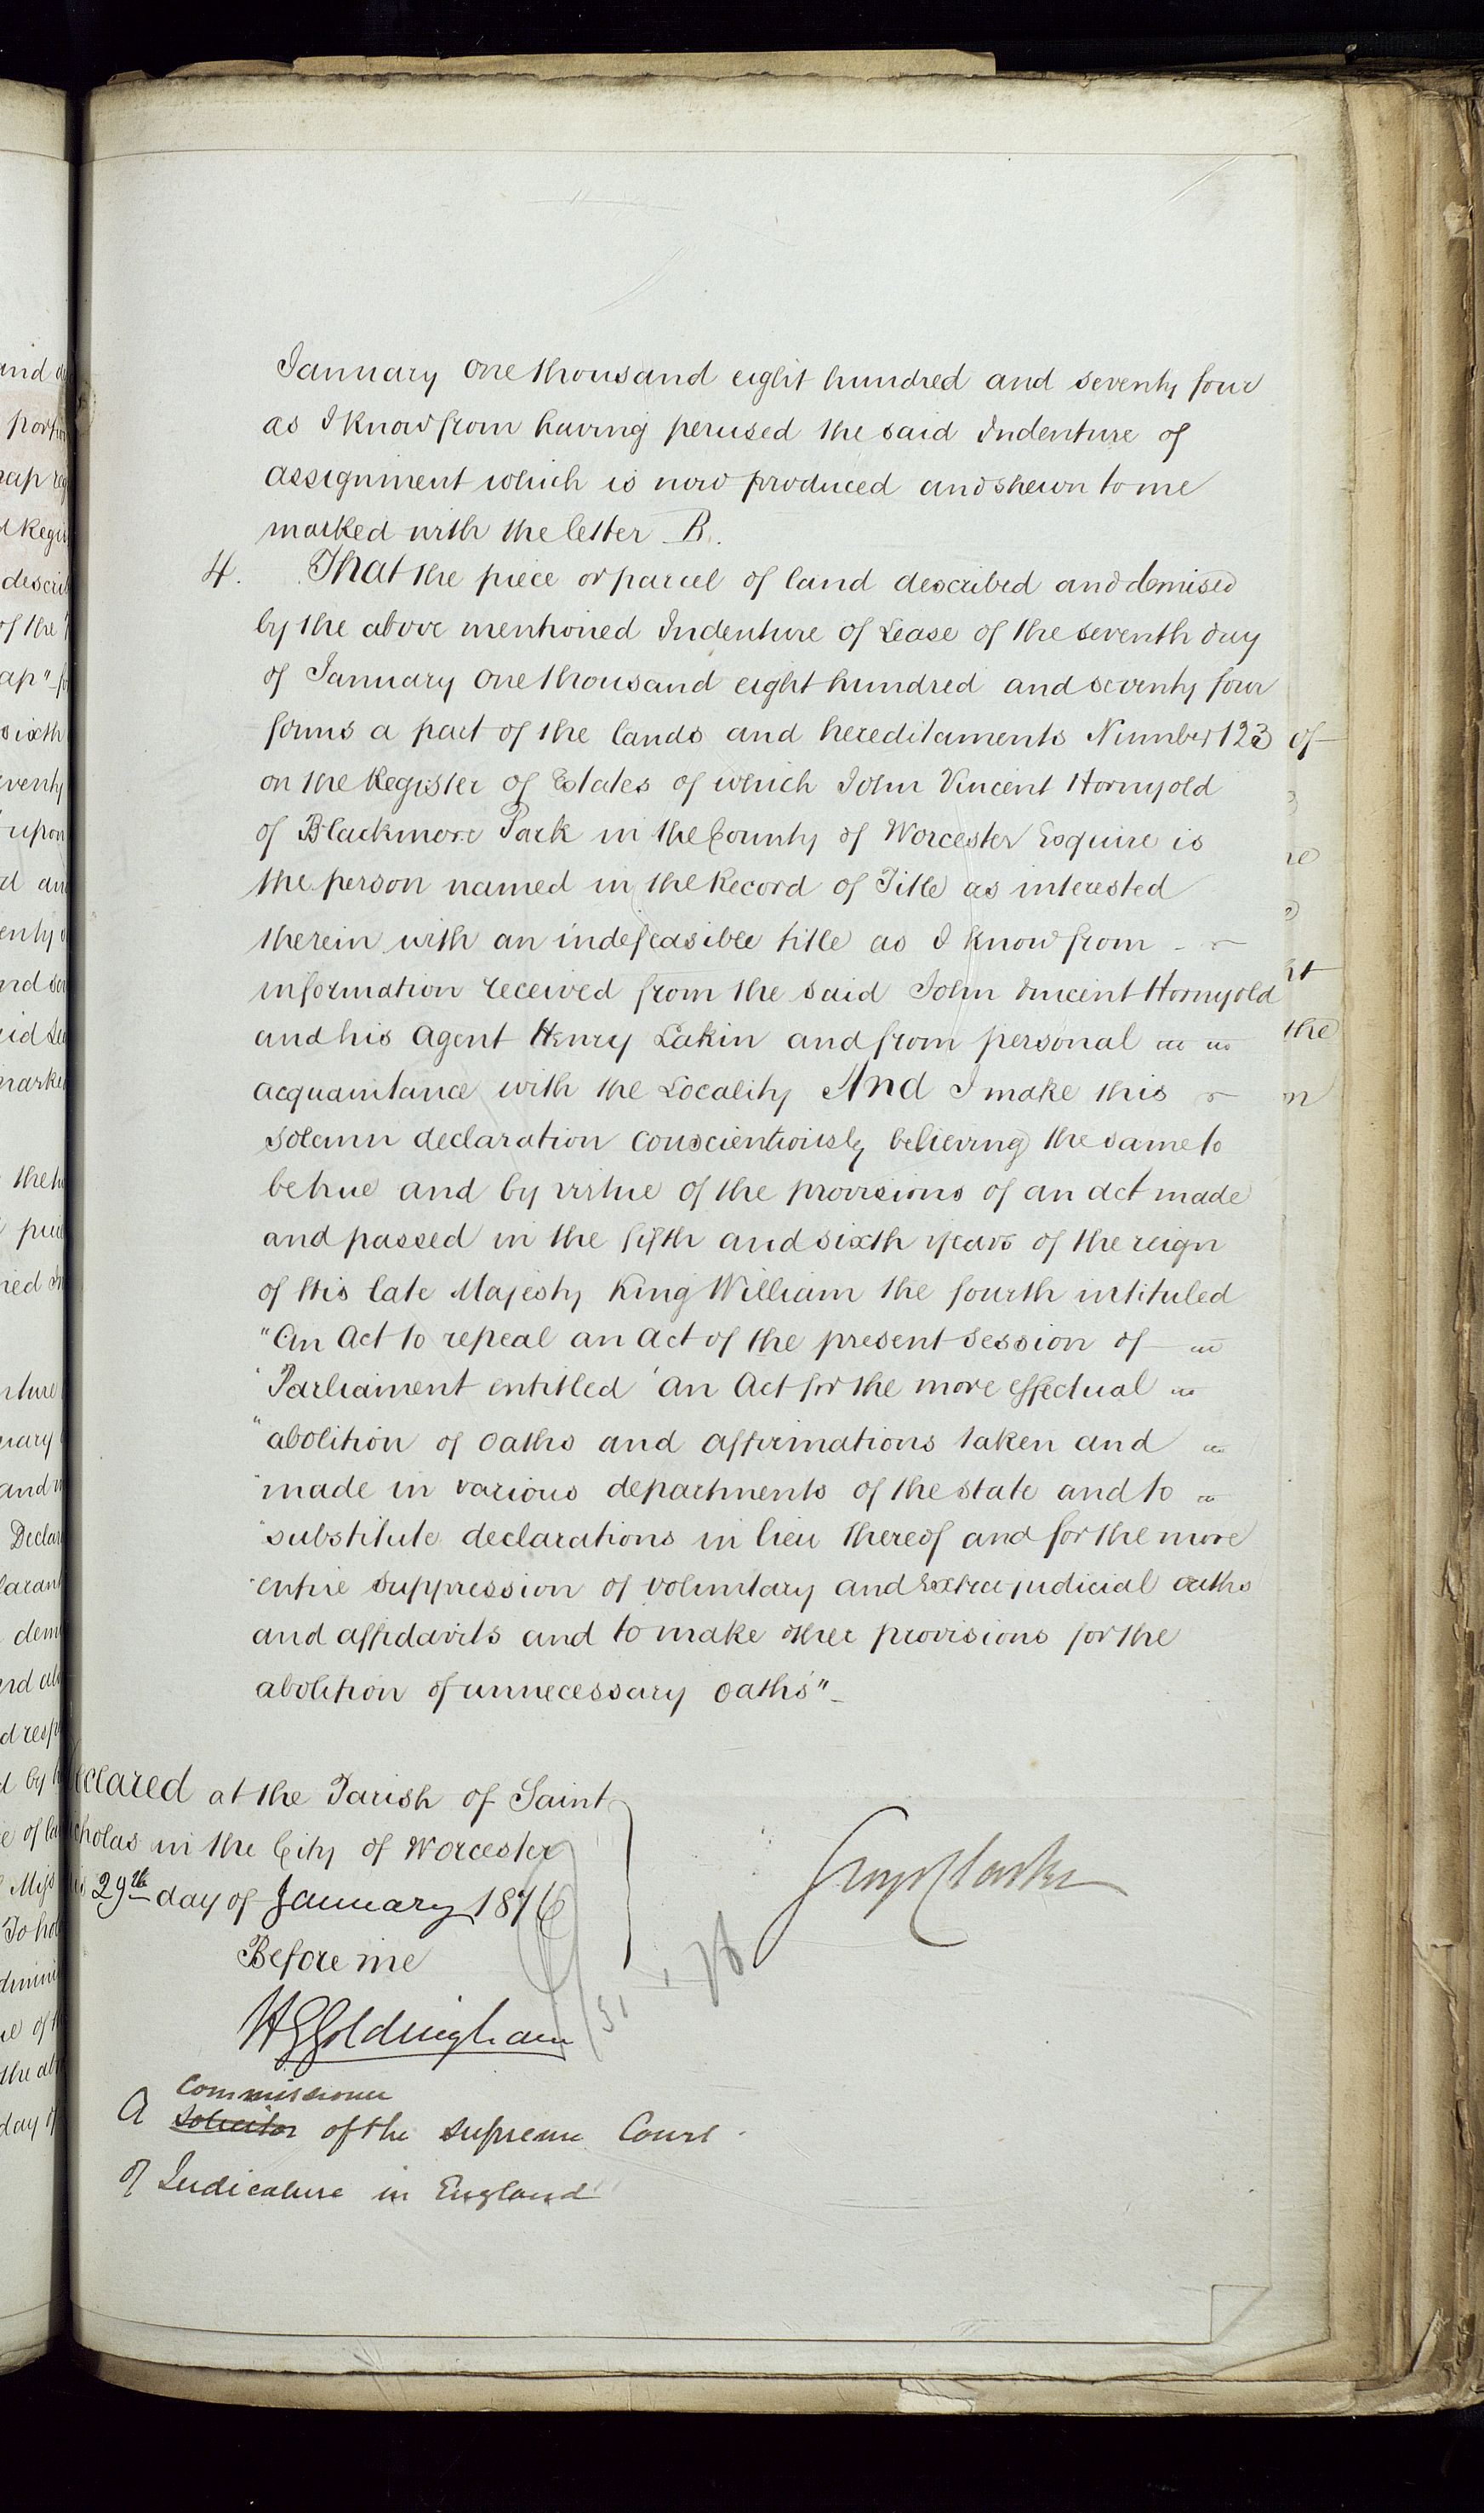 January one thousand eight hundred and seventy four
as I know from having perused the said Indenture of
assignment which is now produced and shewn to me
marked with the letter B.
4. That the piece or parcel of land described and demised
by the above mentioned Indenture of Lease of the seventh day
of January one thousand eight hundred and seventy four
forms a part of the lands and hereditaments Number 123
on the Register of Estates of which John Vincent Hornyold
of Blackmore Park in the County of Worcester Esquire is
the person named in the Record of Title as interested
therein with an indefeasible title as I know from
information received from the said John Vincent Hornyold
and his Agent Henry Lakin and from personal
acquaintance with the Locality And I make this
solemn declaration conscientiously believing the same to
be true and by virtue of the provisions of an Act made
and passed in the fifth and sixth years of the reign
of His late Majesty King William the fourth intituled
"An Act to repeal an Act of the present Session of
"Parliament entitled 'An Act for the more effectual
"abolition of oaths and affirmations taken and
"made in various departments of the state and to
"substitute declarations in lieu thereof and for the more
"entire suppression of voluntary and extra judicial oaths
and affidavits and to make other provisions for the
abolition of unnecessary oaths'"
eclared at the Parish of Saint
cholas in the City of Worcester
is 29th day of January 1876
Before me
H G Goldingham
Commissioner
A Solicitor of the Supreme Court
of Judicature in England